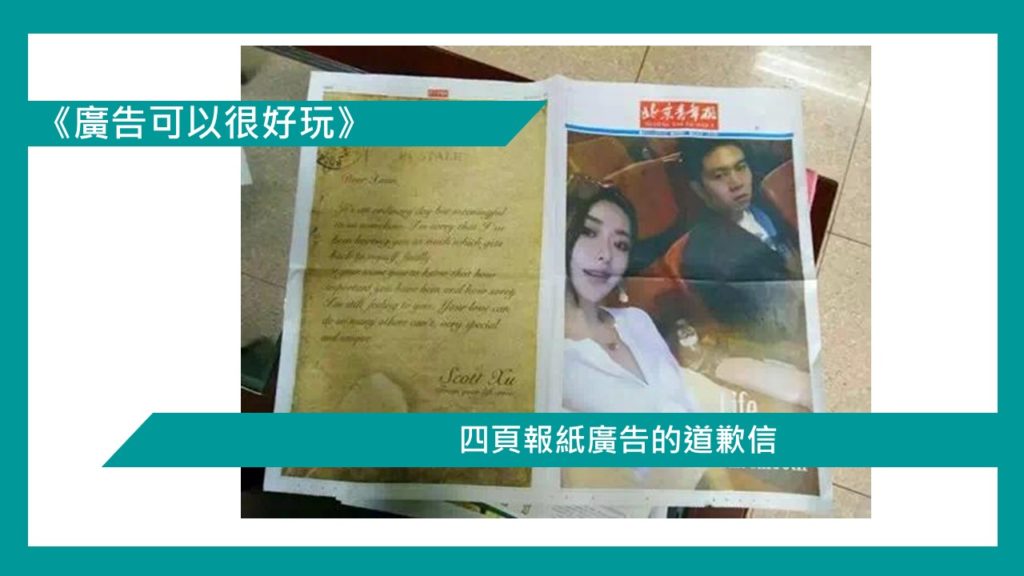 《廣告可以很好玩》
北京青年报
Dear Xuan,
It's an ordinary day but meaningful
to us somehow. I'm sorry that I've
been hurting you so much which gets
back to myself, finally.
important you have been and how sorry
I'm still feeling to you. Your love can
do so many others can't, very special
and unique.
Scott Xu
Life
四頁報紙廣告的道歉信